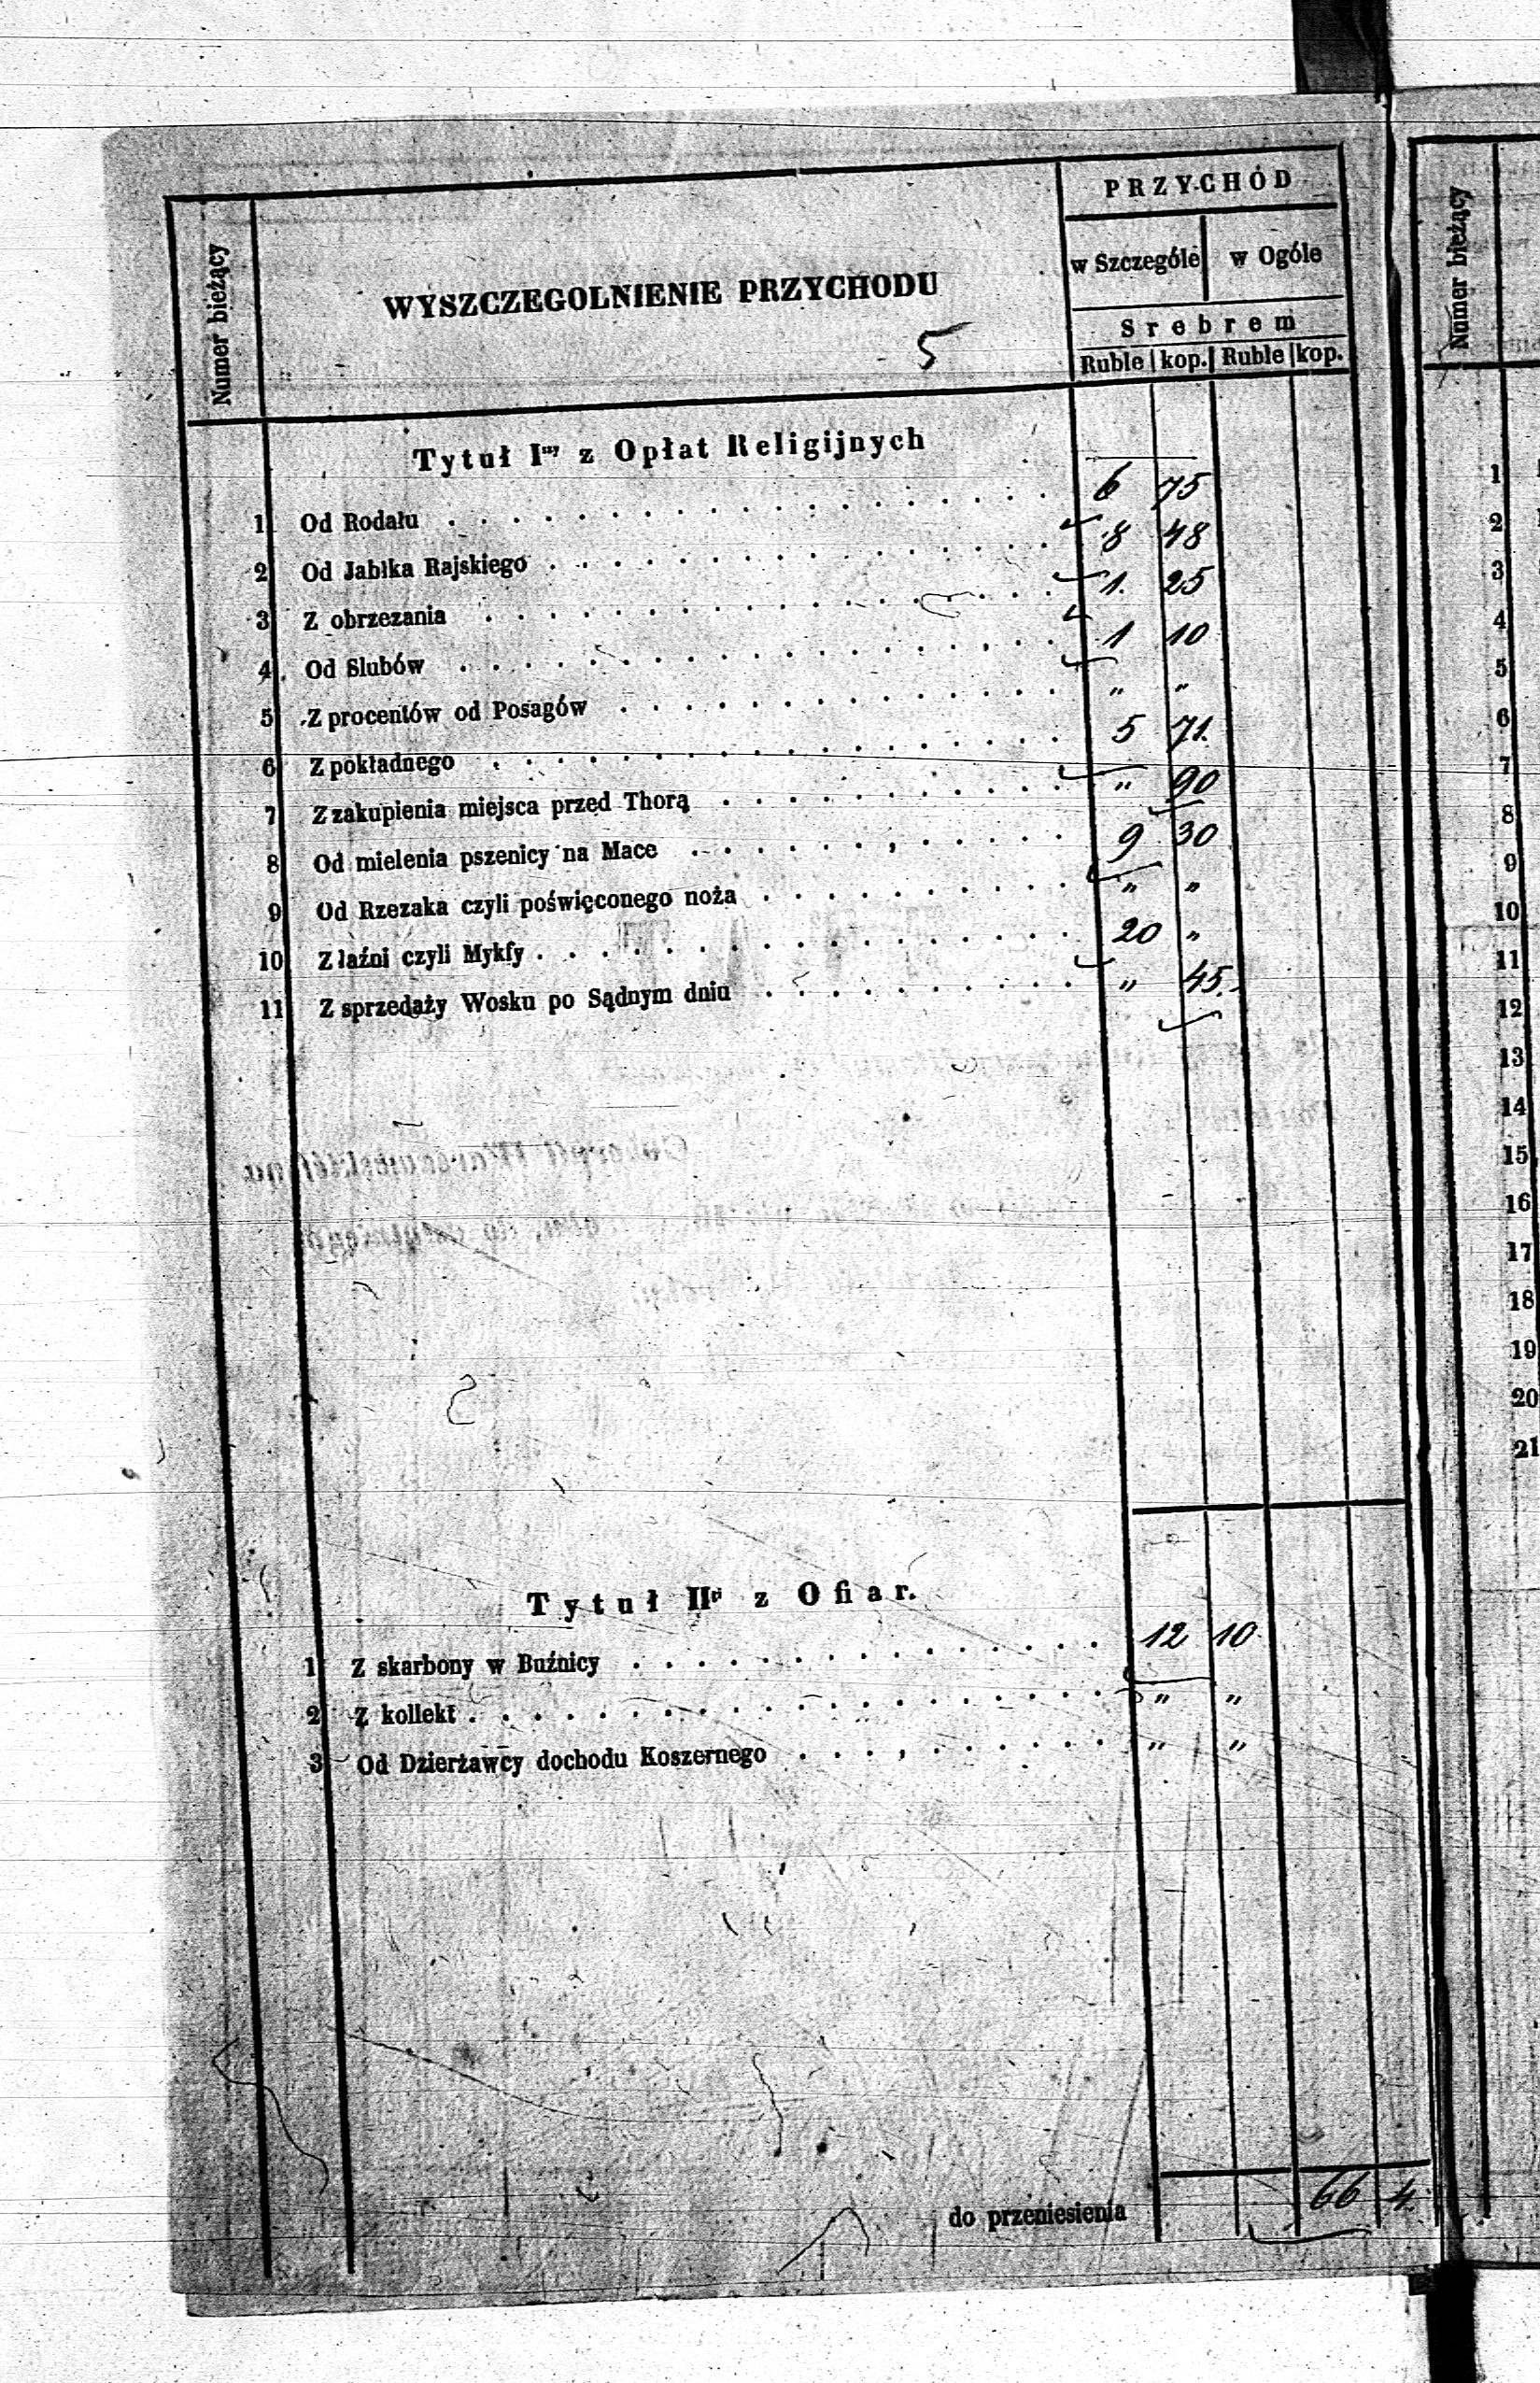 Numer bieżący
WYSZCZEGOLNIENIE PRZYCHODU
5
PRZYCHÓD
w Szczególe w Ogóle
Srebrem
Ruble kop. Ruble kop.
Tytuł Iny z Opłat Religijnych
1 Od Rodału 6 75
2 Od Jabłka Rajskiego 8 48
3 Z obrzezania 1. 25
4 Od Slubów 1 10
5 Z procentów od Posagów " "
6 Z pokładnego 5 71.
7 Z zakupienia miejsca przed Thorą " 90
8 Od mielenia pszenicy na Mace 9 30
9 Od Rzezaka czyli poświęconego noża " "
10 Z łaźni czyli Mykfy 20 "
11 Z sprzedaży Wosku po Sądnym dniu " 45.
Tytuł IIgi z Ofiar.
1 Z skarbony w Buźnicy 12 10
2 Z kollekt " "
3 Od Dzierżawcy dochodu Koszernego " "
do przeniesienia 66 4.
Numer bieżący
1
2
3
4
5
6
7
8
9
10
11
12
13
14
15
16
17
18
19
20
21